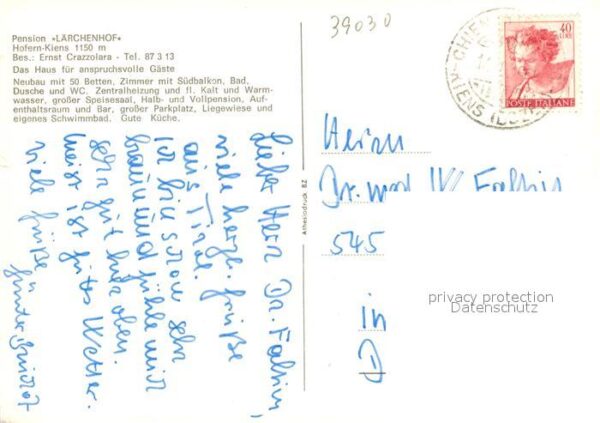 Pension »LÄRCHENHOF«
Hofern-Kiens 1150 m
Bes.: Ernst Crazzolara - Tel. 87 3 13
Das Haus für anspruchsvolle Gäste
Neubau mit 50 Betten, Zimmer mit Südbalkon, Bad,
Dusche und WC, Zentralheizung und fl. Kalt und Warm-
wasser, großer Speisesaal, Halb- und Vollpension, Auf-
enthaltsraum und Bar, großer Parkplatz, Liegewiese und
eigenes Schwimmbad. Gute Küche.
Lieber Herr Dr.
viele herzl. Grüße
aus Tirol.
Ich bin schon sehr
braun und fühle mich
sehr gut hier oben.
Meist ist gutes Wetter.
Viele Grüße
Athesiadruck BZ
39030
KIENS
40
LIRE
POSTE ITALIANE
Herrn
Dr. med W.
545
in
D
privacy protection
Datenschutz